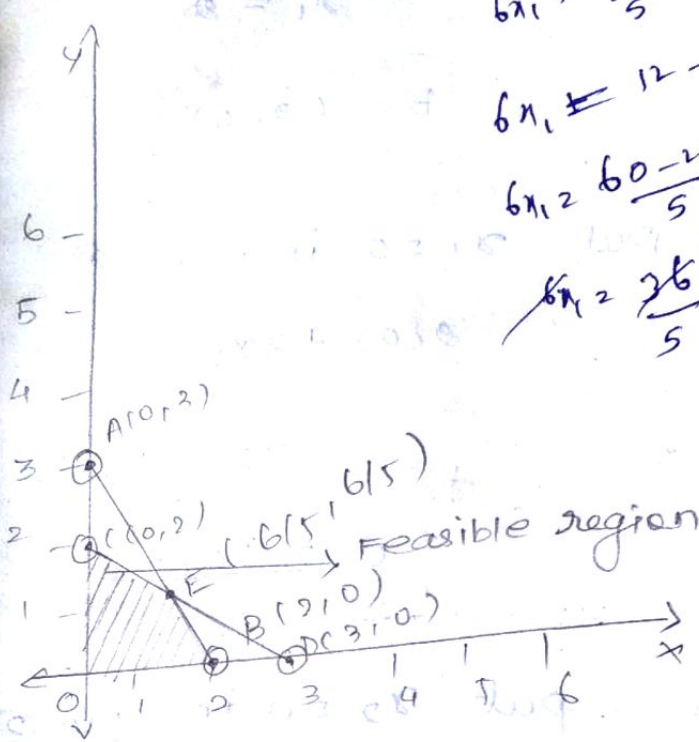 6x₁ = 5
6x₁ = 12 -
6x₁ = 60 - 2
5
6x₁ = 36
5
y
6
5
4
A(0,3)
3
2
C(0,2)
(6/5, 6/5)
Feasible region
1
E
B(2,0)
D(3,0)
0
1
2
3
4
5
6
x